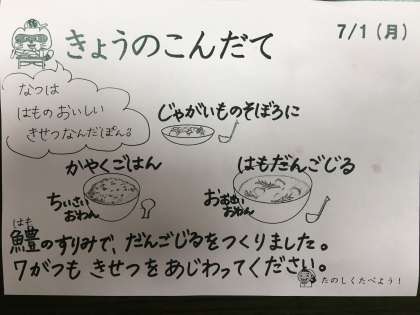 きょうのこんだて
7/1（月）
なつは
はものおいしい
きせつなんだぽん♪
じゃがいものそぼろに
かやくごはん
ちいさい
おわん
はもだんごじる
おおきい
おわん
はも
鱧のすりみで、だんごじるをつくりました。
7がつも きせつをあじわってください。
たのしくたべよう！